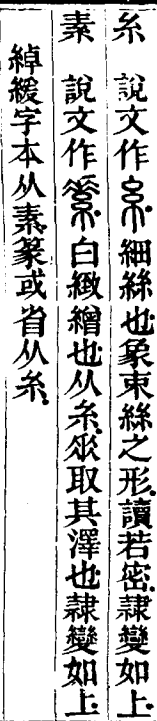 糸 說文作糸細絲也象束絲之形讀若密隷變如上
素 說文作𦃃白緻繒也从糸𠂹取其澤也隷變如上
綽緩字本从素篆或省从糸